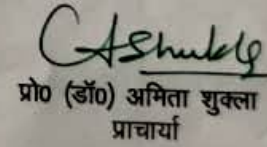 AShukla
प्रो० (डॉ०) अमिता शुक्ला
प्राचार्या